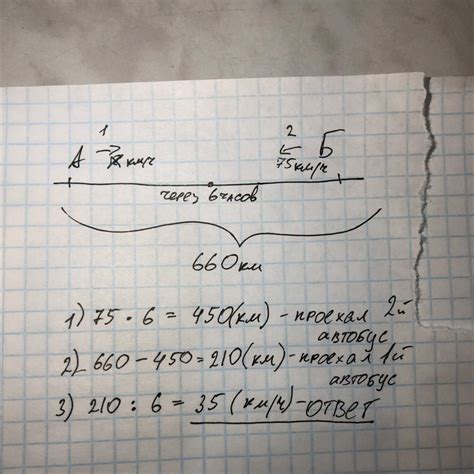 1 2
А х км/ч 75 км/ч Б
через 6 часов
660 км
1) 75 · 6 = 450 (км) - проехал 2й
автобус
2) 660 - 450 = 210 (км) - проехал 1й
автобус
3) 210 : 6 = 35 (км/ч) - ответ